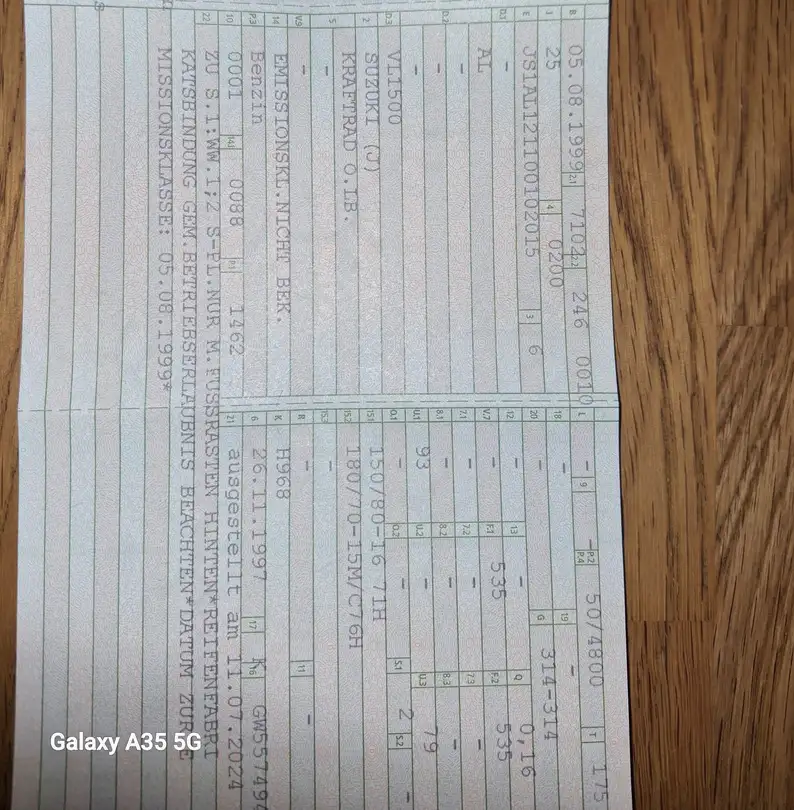 B 05.08.1999 2.1 7102 2.2 246 0010 L - 9 - P.2 P.4 50/4800 T 175
J 25 4 0200 18 - 19 -
E JS1AL121100102015 3 6 20 - G 314-314
D.1 - 12 - 13 - Q 0,16
AL V.7 - F.1 535 F.2 535
D.2 - 7.1 - 7.2 - 7.3 -
- 8.1 - 8.2 - 8.3 -
- U.1 93 U.2 - U.3 79
D.3 VL1500 O.1 - O.2 - S.1 2 S.2 -
2 SUZUKI (J) 15.1 150/80-16 71H
5 KRAFTRAD O.LB. 15.2 180/70-15M/C76H
- 15.3 -
V.9 - R - 11 -
14 EMISSIONSKL.NICHT BEK. K H968
P.3 Benzin 6 26.11.1997 17 K 16 GW557494
10 0001 14.1 0088 P.1 1462 21 ausgestellt am 11.07.2024
22 ZU S.1:WW.1;2 S-PL.NUR M.FUSSRASTEN HINTEN*REIFENFABRI
KATSBINDUNG GEM.BETRIEBSERLAUBNIS BEACHTEN*DATUM ZUR E
MISSIONSKLASSE: 05.08.1999*
Galaxy A35 5G